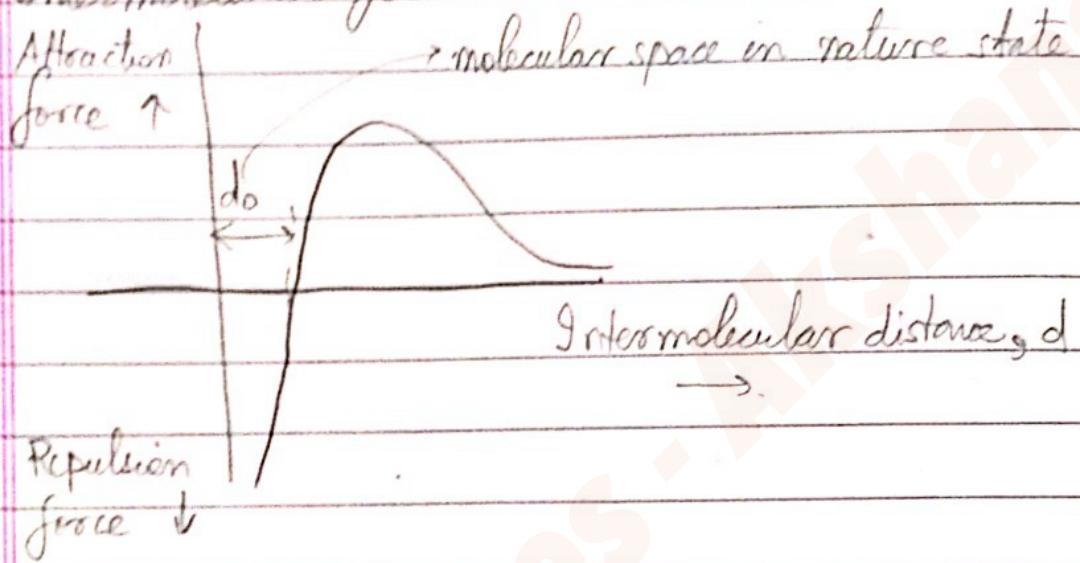 Attraction
force ↑
→ molecular space in nature state
d₀
Intermolecular distance, d
→
Repulsion
force ↓